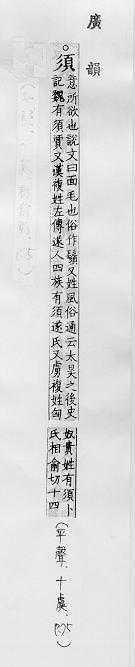 廣韻
。須
意所欲也說文曰面毛也俗作鬚又姓風俗通云太昊之後史
記魏有須賈又漢複姓左傳遂人四族有須遂氏又虜複姓匈
奴貴姓有須卜
氏相俞切十四
(平聲、十虞、